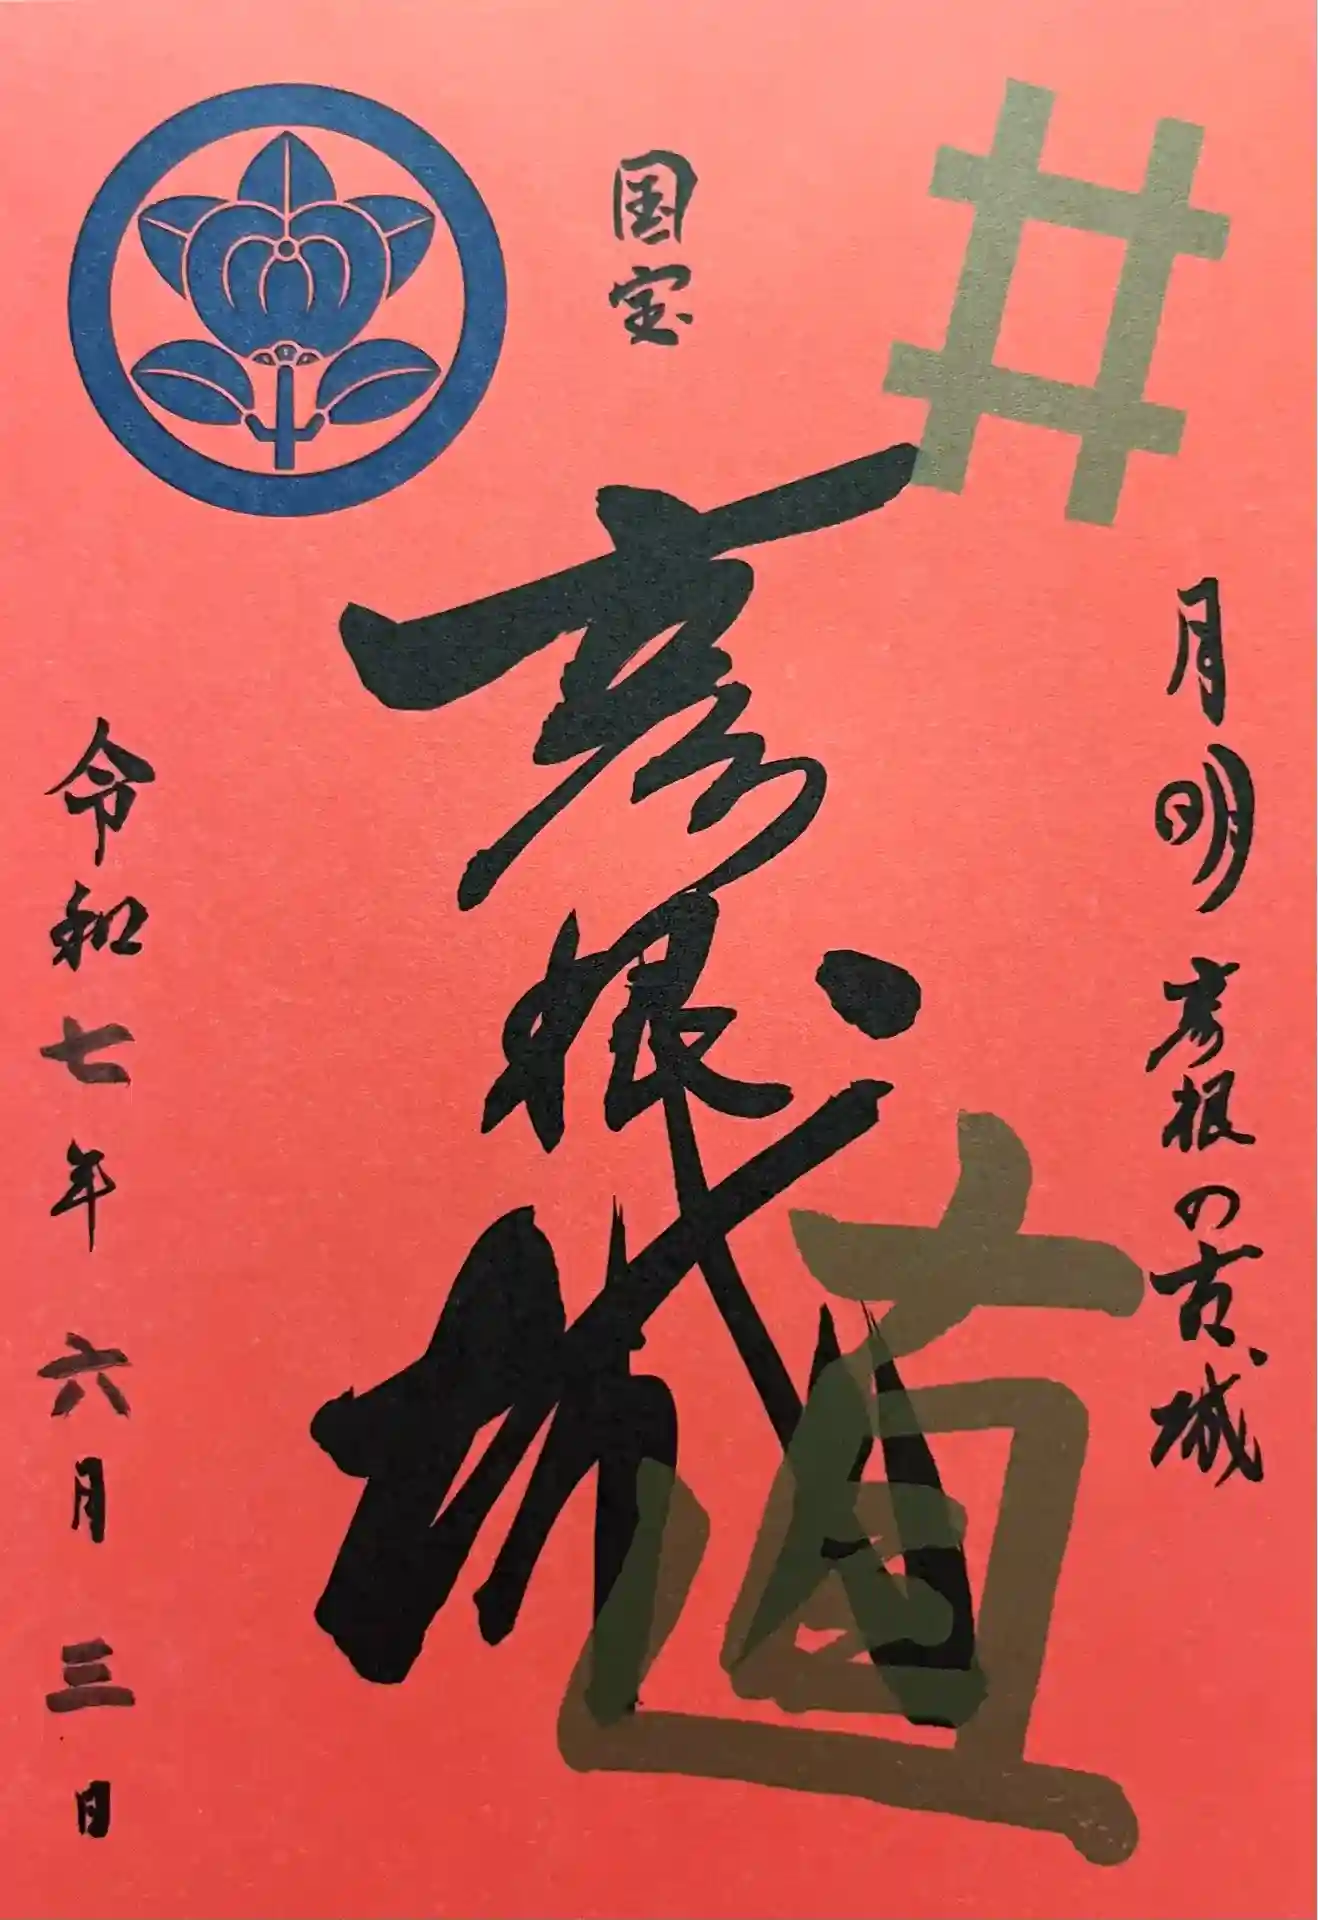 月明 彦根の古城
国宝
彦根城
井
直
令和七年 六月 三日